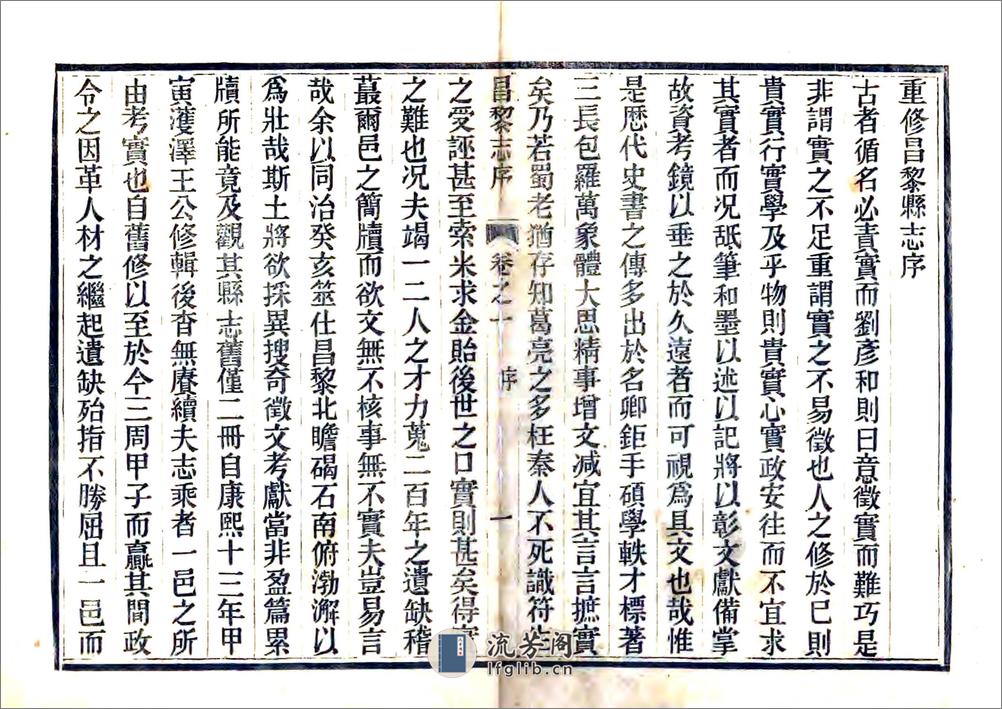 重修昌黎縣志序
古者循名必責實而劉彥和則曰意徵實而難巧是
非謂實之不足重謂實之不易徵也人之修於巳則
貴實行實學及乎物則貴實心實政安往而不宜求
其實者而况舐筆和墨以述以記將以彰文獻備掌
故資考鏡以垂之於久遠者而可視爲具文也哉惟
是歷代史書之傳多出於名卿鉅手碩學軼才標著
三長包羅萬象體大思精事增文减宜其言言摭實
矣乃若蜀老猶存知葛亮之多枉秦人不死識符生
昌黎志序 卷之十 序 一
之受誣甚至索米求金貽後世之口實則甚矣得實
之難也况夫竭一二人之才力蒐二百年之遺缺稽
蕞爾邑之簡牘而欲文無不核事無不實夫豈易言
哉余以同治癸亥筮仕昌黎北瞻碣石南俯渤澥以
爲壯哉斯土將欲採異搜奇徵文考獻當非盈篇累
牘所能竟及觀其縣志舊僅二冊自康熙十三年甲
寅濩澤王公修輯後杳無賡續夫志乘者一邑之所
由考實也自舊修以至於今三周甲子而贏其間政
令之因革人材之繼起遺缺殆指不勝屈且一邑而
流芳阁
lfglib.cn